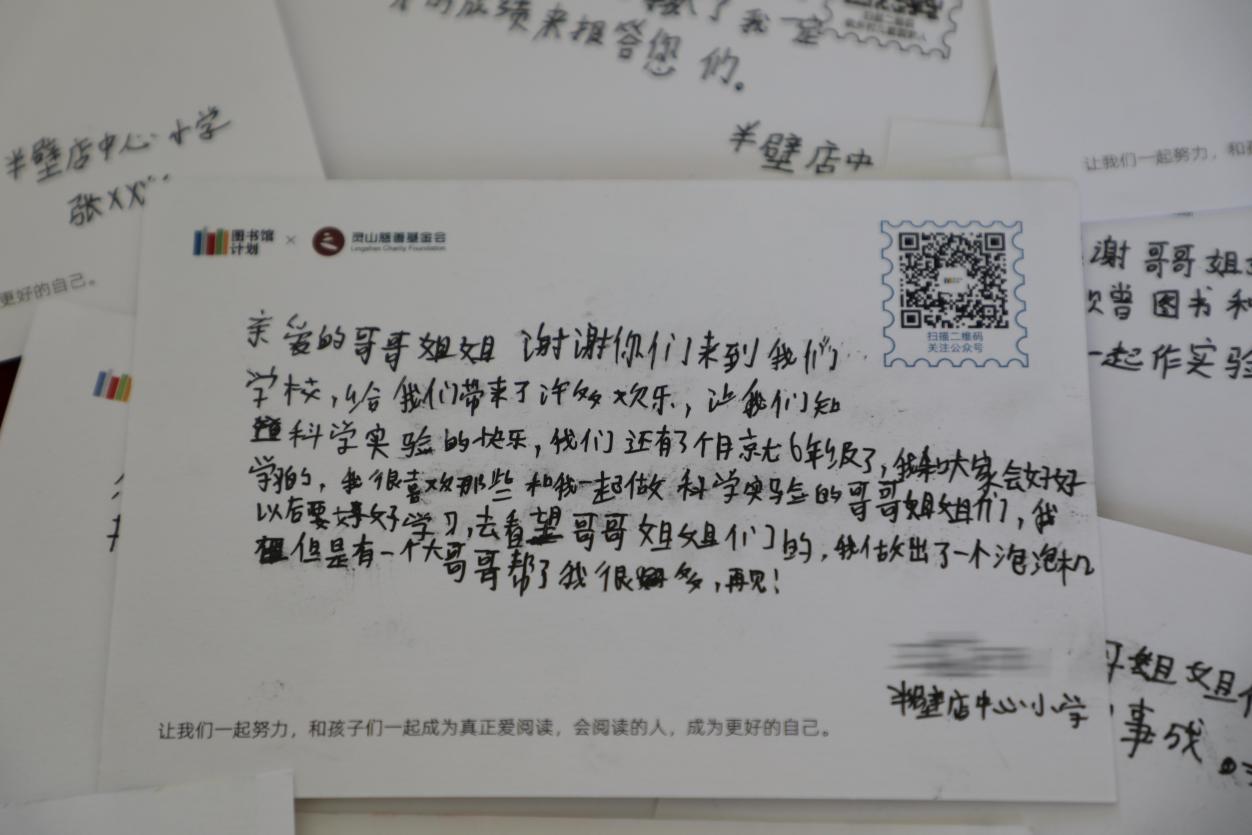 来报答您们。
半壁店中心小学
张XX
半壁店中
让我们一起努力，和
更好的自己。
图书馆
计划
×
灵山慈善基金会
Lingshan Charity Foundation
扫描二维码
关注公众号
亲爱的哥哥姐姐 谢谢你们来到我们
学校，给我们带来了许多欢乐，让我们知
科学实验的快乐，我们还有3个月京尤6年级了，我和大家会好好
学的，我很喜欢那些和我一起做科学实验的哥哥姐姐们，我
以后要好好学习，去看望哥哥姐姐们的，我做出了一个泡泡机
但是有一个大哥哥帮了我很多，再见！
半壁店中心小学
让我们一起努力，和孩子们一起成为真正爱阅读，会阅读的人，成为更好的自己。
谢哥哥姐
图书和
一起作实验
姐姐
事成